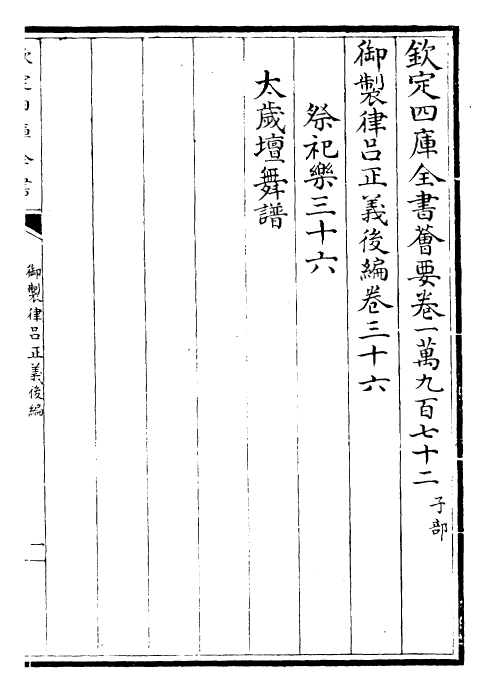 欽定四庫全書薈要卷一萬九百七十二 子部
御製律呂正義後編卷三十六
祭祀樂三十六
太歲壇舞譜
欽定四庫全書
御製律呂正義後編